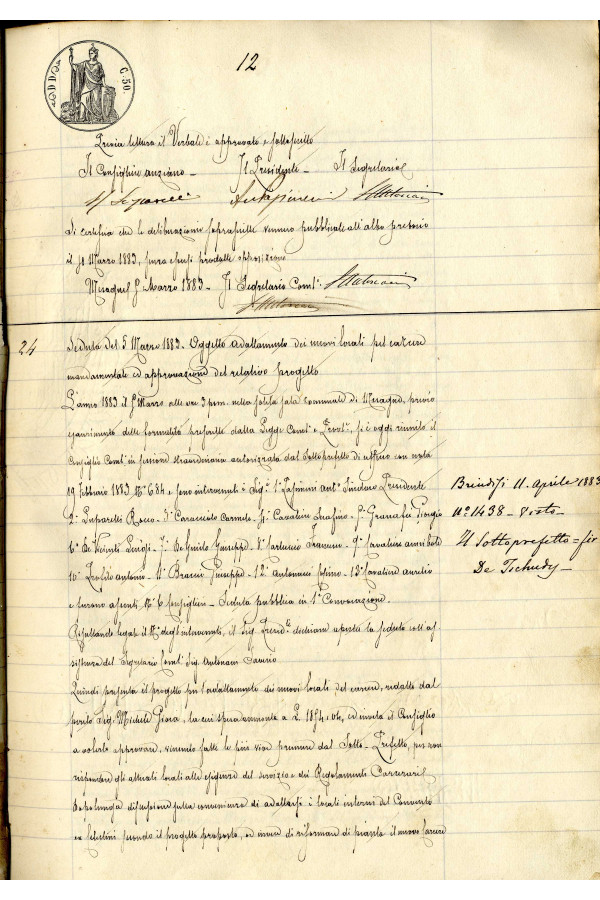 12
C. 50.
Previa lettura il Verbale è approvato e sottoscritto
Il Consigliere anziano — Il Presidente — Il Segretario
Si certifica che le deliberazioni soprascritte vennero pubblicate all'albo pretorio
il Marzo 1883, senza essersi prodotte opposizioni
Mesagne Marzo 1883 — Il Segretario Com.le
24
Seduta del 5 Marzo 1883. Oggetto adattamento dei nuovi locali pel carcere
mandamentale ed approvazione del relativo progetto
L'anno 1883 il 5 Marzo alle ore 3 pom. nella solita sala comunale di Mesagne, previo
esaurimento delle formalità prescritte dalla Legge Com.le e Prov.le, si è oggi riunito il
Consiglio Com.le in sessione straordinaria autorizzata dal Sottoprefetto di ufficio con nota
19 Febbraio 1883 N.° 684 e sono intervenuti i Sig.i 1.° Antº Sindaco Presidente
2.° Rocco — 3.° Caracciolo Carmelo — 4.° Cavaliere Serafino — 5.° Granafei Giorgio
6.° De Luigi — 7.° De Guido Giuseppe — 8.° — 9.° Cavaliere Annibale
10.° Profilo Antonio — 11.° Giuseppe — 12.° Antonucci — 13.° Cavaliere Aurelio
e furono assenti N.° 6 Consiglieri — Seduta pubblica in 1.a Convocazione —
Risultando legale il N.° degl'intervenuti, il Sig. Presid.te dichiara aperta la seduta coll'as
sistenza del Segretario Com.le Sig.
Quindi presenta il progetto per l'adattamento dei nuovi locali del carcere, redatto dal
perito Sig. Michele Gioia, la cui spesa ammonta a L. 1874.04, ed invita il Consiglio
a volerlo approvare, venendo fatte le più vive premure dal Sotto-Prefetto, per non
rispondere gli attuali locali alle esigenze del servizio e dei Regolamenti Carcerarii
Dopo lunga discussione sulla convenienza di adattarsi i locali interni del Convento
ex Celestini secondo il progetto proposto, ed invece di riformare di pianta il nuovo Carcere
Brindisi 11. Aprile 1883
N.° 1438 — Visto —
Il Sottoprefetto = fir
De Tschudy —